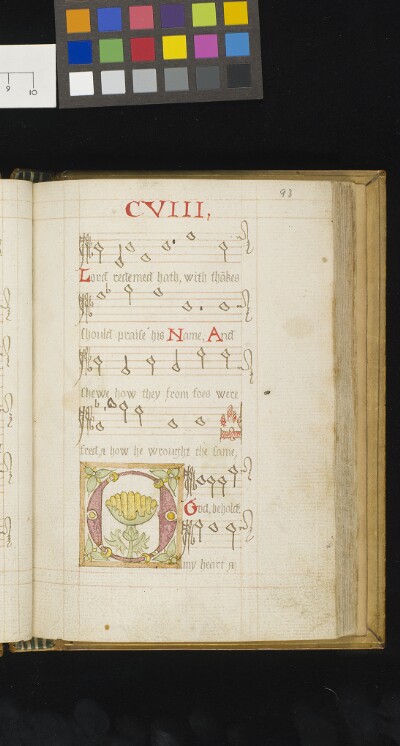 9
10
93
CVIII.
Lord redemed hath, with thākes
should praise his Name, And
shewe how they from foes were
freed, & how he wrought the same,
O God, behold
my heart &